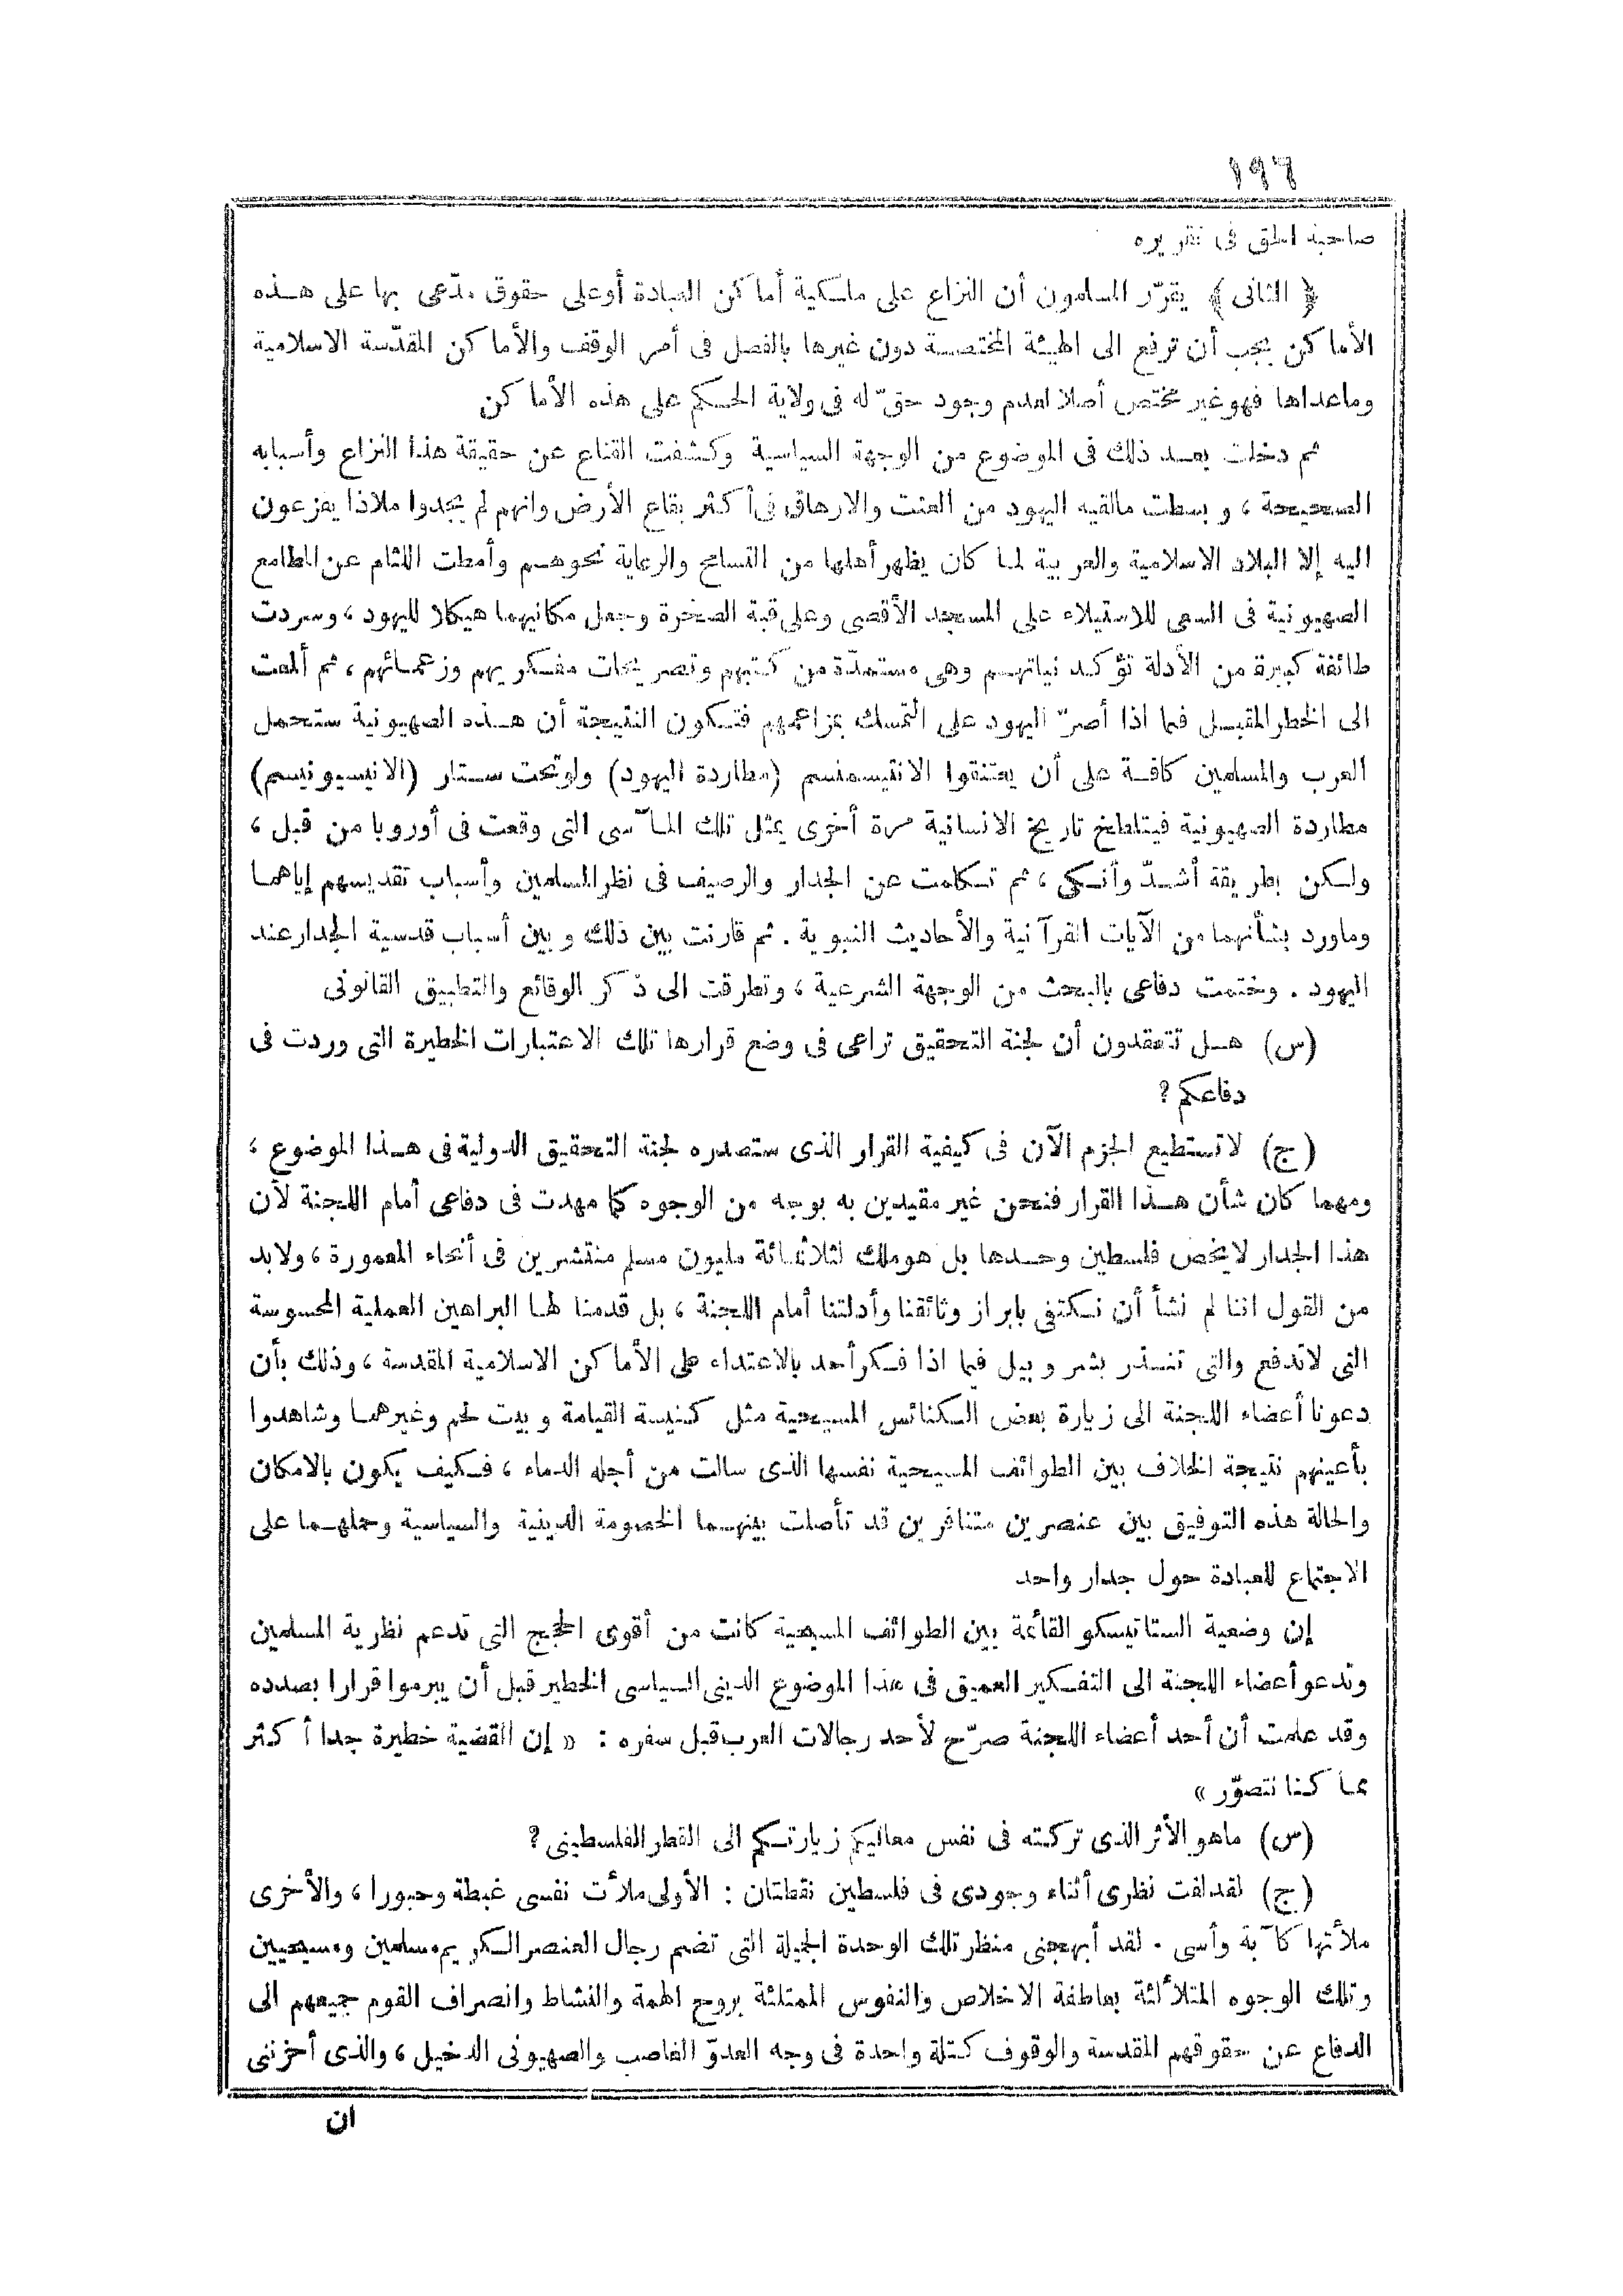 ١٩٦
صاحبة الحق فى تقريره
﴿ الثانى ﴾ يقرّر المسلمون أن النزاع على ملكية أماكن العبادة أوعلى حقوق مدّعى بها على هذه
الأماكن يجب أن ترفع الى الهيئة المختصة دون غيرها بالفصل فى أمر الوقف والأماكن المقدّسة الاسلامية
وماعداها فهوغير مختص أصلا لعدم وجود حقّ له فى ولاية الحكم على هذه الأماكن
ثم دخلت بعد ذلك فى الموضوع من الوجهة السياسية وكشفت القناع عن حقيقة هذا النزاع وأسبابه
الصحيحة ، وبسطت مالقيه اليهود من العنت والارهاق فى أكثر بقاع الأرض وانهم لم يجدوا ملاذا يفزعون
اليه إلا البلاد الاسلامية والعربية لما كان يظهر أهلها من التسامح والرعاية نحوهم وأمطت اللثام عن المطامع
الصهيونية فى السعى للاستيلاء على المسجد الأقصى وعلى قبة الصخرة وجعل مكانيهما هيكلا لليهود ، وسردت
طائفة كبيرة من الأدلة تؤكد نياتهم وهى مستمدّة من كتبهم وتصريحات مفكريهم وزعمائهم ، ثم ألمعت
الى الخطر المقبل فيما اذا أصرّ اليهود على التمسك بمزاعمهم فتكون النتيجة أن هذه الصهيونية ستحمل
العرب والمسلمين كافة على أن يعتنقوا الانتيسمنسم (مطاردة اليهود) ولوتحت ستار (الانيسيونيسم)
مطاردة الصهيونية فيتلطخ تاريخ الانسانية مرة أخرى بمثل تلك المآسى التى وقعت فى أوروبا من قبل ،
ولكن بطريقة أشدّ وأنكى ، ثم تكلمت عن الجدار والرصيف فى نظر المسلمين وأسباب تقديسهم إياهما
وماورد بشأنهما من الآيات القرآنية والأحاديث النبوية . ثم قارنت بين ذلك وبين أسباب قدسية الجدار عند
اليهود . وختمت دفاعى بالبحث من الوجهة الشرعية ، وتطرقت الى ذكر الوقائع والتطبيق القانونى
(س) هل تعتقدون أن لجنة التحقيق تراعى فى وضع قرارها تلك الاعتبارات الخطيرة التى وردت فى
دفاعكم ؟
(ج) لاتستطيع الجزم الآن فى كيفية القرار الذى ستصدره لجنة التحقيق الدولية فى هذا الموضوع ،
ومهما كان شأن هذا القرار فنحن غير مقيدين به بوجه من الوجوه كما مهدت فى دفاعى أمام اللجنة لأن
هذا الجدار لايخص فلسطين وحدها بل هوملك لثلاثمائة مليون مسلم منتشرين فى أنحاء المعمورة ، ولابد
من القول اننا لم نشأ أن نكتفى بابراز وثائقنا وأدلتنا أمام اللجنة ، بل قدمنا لها البراهين العملية المحسوسة
التى لاتدفع والتى تنذر بشر وبيل فيما اذا فكر أحد بالاعتداء على الأماكن الاسلامية المقدسة ، وذلك بأن
دعونا أعضاء اللجنة الى زيارة بعض الكنائس المسيحية مثل كنيسة القيامة وبيت لحم وغيرهما وشاهدوا
بأعينهم نتيجة الخلاف بين الطوائف المسيحية نفسها الذى سالت من أجله الدماء ، فكيف يكون بالامكان
والحالة هذه التوفيق بين عنصرين متنافرين قد تأصلت بينهما الخصومة الدينية والسياسية وحملهما على
الاجتماع للعبادة حول جدار واحد
إن وضعية الستاتيسكو القائمة بين الطوائف المسيحية كانت من أقوى الحجج التى تدعم نظرية المسلمين
وتدعو أعضاء اللجنة الى التفكير العميق فى هذا الموضوع الدينى السياسى الخطير قبل أن يبرموا قرارا بصدده
وقد علمت أن أحد أعضاء اللجنة صرّح لأحد رجالات العرب قبل سفره : « إن القضية خطيرة جدا أكثر
مما كنا نتصوّر »
(س) ماهو الأثر الذى تركته فى نفس معاليكم زيارتكم الى القطر الفلسطينى ؟
(ج) لقد لفت نظرى أثناء وجودى فى فلسطين نقطتان : الأولى ملأت نفسى غبطة وحبورا ، والأخرى
ملأتها كآبة وأسى . لقد أبهجنى منظر تلك الوحدة الجميلة التى تضم رجال العنصر الكريم مسلمين ومسيحيين
وتلك الوجوه المتلألئة بعاطفة الاخلاص والنفوس الممتلئة بروح الهمة والنشاط وانصراف القوم جميعهم الى
الدفاع عن حقوقهم المقدسة والوقوف كتلة واحدة فى وجه العدوّ الغاصب والصهيونى الدخيل ، والذى أحزننى
ان